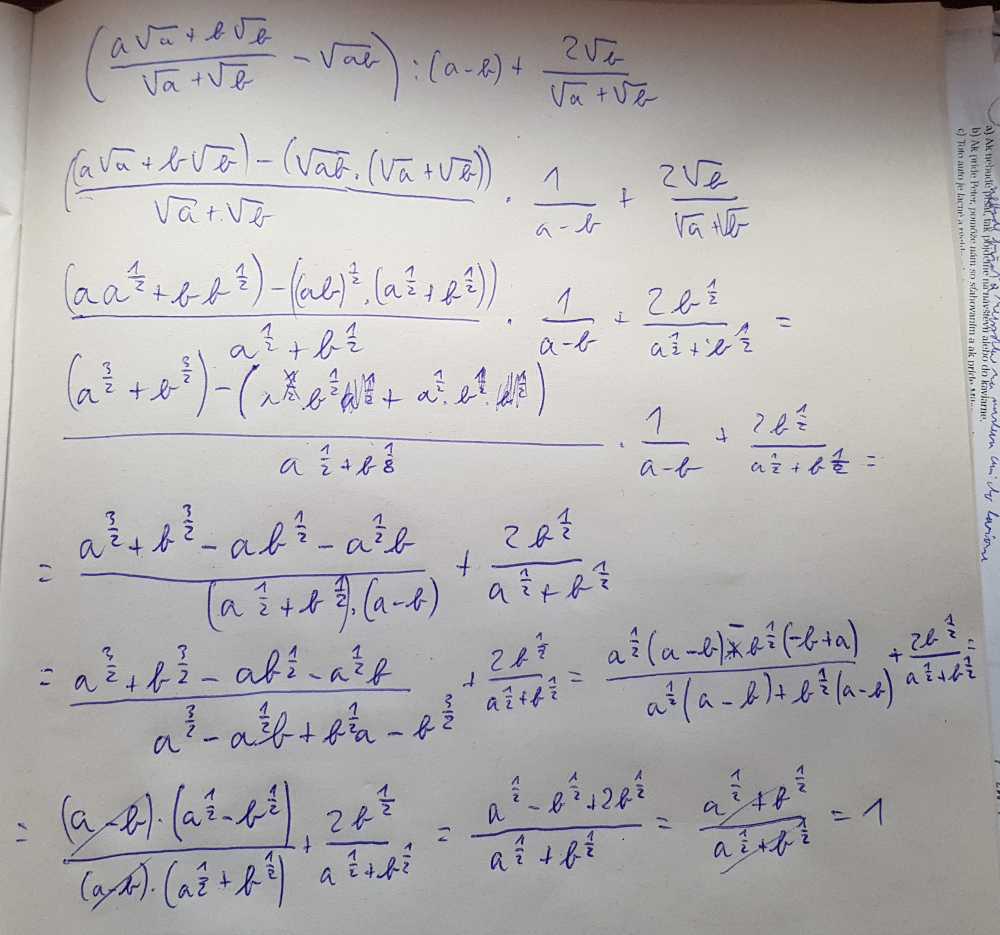 ((a√a + b√b)/(√a + √b) − √ab) : (a−b) + 2√b/(√a + √b)
((a√a + b√b) − (√ab · (√a + √b)))/(√a + √b) · 1/(a−b) + 2√b/(√a + √b)
((aa^(1/2) + bb^(1/2)) − ((ab)^(1/2) · (a^(1/2) + b^(1/2))))/(a^(1/2) + b^(1/2)) · 1/(a−b) + 2b^(1/2)/(a^(1/2) + b^(1/2)) =
((a^(3/2) + b^(3/2)) − ( b^(1/2) + a^(1/2) · b^(1/2) ))/(a^(1/2) + b ) · 1/(a−b) + 2b^(1/2)/(a^(1/2) + b^(1/2)) =
= (a^(3/2) + b^(3/2) − ab^(1/2) − a^(1/2)b)/((a^(1/2) + b^(1/2)) · (a−b)) + 2b^(1/2)/(a^(1/2) + b^(1/2))
= (a^(3/2) + b^(3/2) − ab^(1/2) − a^(1/2)b)/(a^(3/2) − a^(1/2)b + b^(1/2)a − b^(3/2)) + 2b^(1/2)/(a^(1/2) + b^(1/2)) = (a^(1/2)(a−b) − b^(1/2)(−b+a))/(a^(1/2)(a−b) + b^(1/2)(a−b)) + 2b^(1/2)/(a^(1/2) + b^(1/2)) =
= ((a−b) · (a^(1/2) − b^(1/2)))/((a−b) · (a^(1/2) + b^(1/2))) + 2b^(1/2)/(a^(1/2) + b^(1/2)) = (a^(1/2) − b^(1/2) + 2b^(1/2))/(a^(1/2) + b^(1/2)) = (a^(1/2) + b^(1/2))/(a^(1/2) + b^(1/2)) = 1
a) Ak nebude pršať, tak pôjdeme na návštevu alebo do kaviarne.
b) Ak príde Peter, pomôže nám so sťahovaním a ak príde
c) Toto auto je lacné a